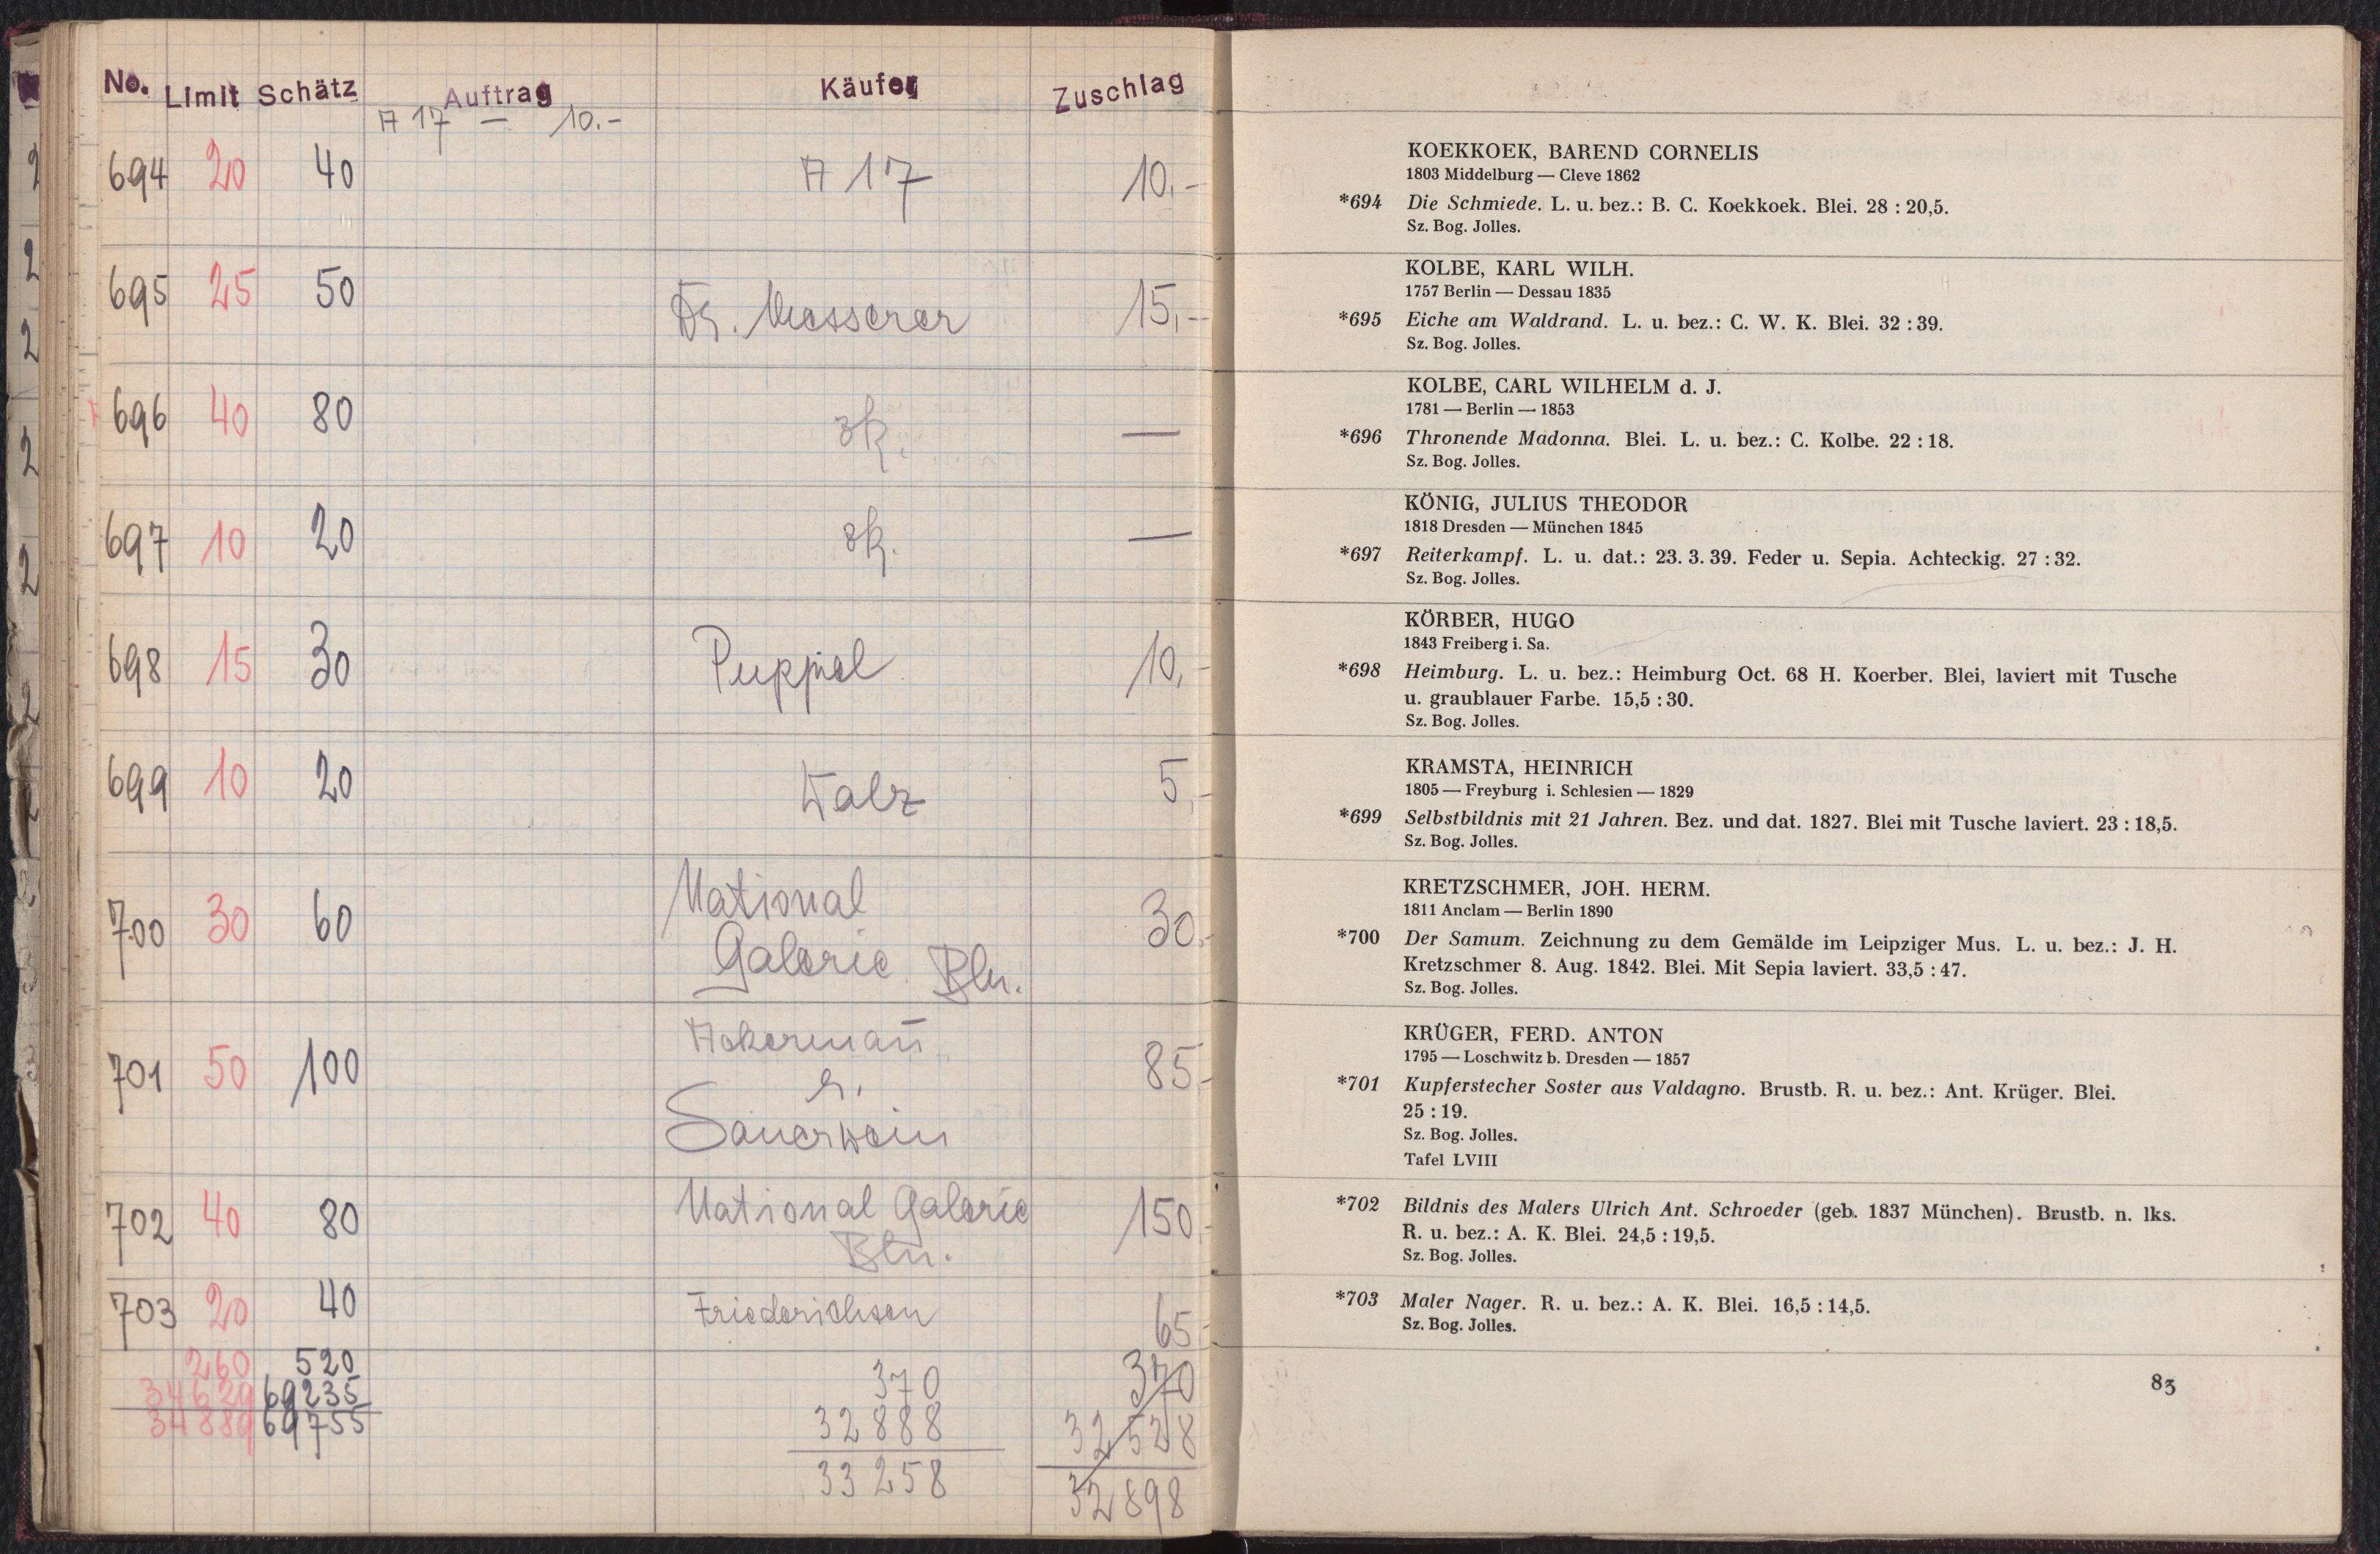 No. Limit Schätz Auftrag Käufer Zuschlag
A 17 — 10.-
694 20 40 A 17 10.-
695 25 50 Dr. Messerer 15,-
696 40 80 zk. —
697 10 20 zk. —
698 15 30 Puppel 10,-
699 10 20 Walz 5,-
700 30 60 National
Galerie Bln. 30,-
701 50 100 Ackermañ
&.
Sauerwein 85,-
702 40 80 National Galerie 150,-
Bln.
703 20 40 Friederichsen 65,-
260 520 370 370
34629 69235 32888 32528
34889 69755 33258 32898
KOEKKOEK, BAREND CORNELIS
1803 Middelburg — Cleve 1862
*694 Die Schmiede. L. u. bez.: B. C. Koekkoek. Blei. 28 : 20,5.
Sz. Bog. Jolles.
KOLBE, KARL WILH.
1757 Berlin — Dessau 1835
*695 Eiche am Waldrand. L. u. bez.: C. W. K. Blei. 32 : 39.
Sz. Bog. Jolles.
KOLBE, CARL WILHELM d. J.
1781 — Berlin — 1853
*696 Thronende Madonna. Blei. L. u. bez.: C. Kolbe. 22 : 18.
Sz. Bog. Jolles.
KÖNIG, JULIUS THEODOR
1818 Dresden — München 1845
*697 Reiterkampf. L. u. dat.: 23. 3. 39. Feder u. Sepia. Achteckig. 27 : 32.
Sz. Bog. Jolles.
KÖRBER, HUGO
1843 Freiberg i. Sa.
*698 Heimburg. L. u. bez.: Heimburg Oct. 68 H. Koerber. Blei, laviert mit Tusche
u. graublauer Farbe. 15,5 : 30.
Sz. Bog. Jolles.
KRAMSTA, HEINRICH
1805 — Freyburg i. Schlesien — 1829
*699 Selbstbildnis mit 21 Jahren. Bez. und dat. 1827. Blei mit Tusche laviert. 23 : 18,5.
Sz. Bog. Jolles.
KRETZSCHMER, JOH. HERM.
1811 Anclam — Berlin 1890
*700 Der Samum. Zeichnung zu dem Gemälde im Leipziger Mus. L. u. bez.: J. H.
Kretzschmer 8. Aug. 1842. Blei. Mit Sepia laviert. 33,5 : 47.
Sz. Bog. Jolles.
KRÜGER, FERD. ANTON
1795 — Loschwitz b. Dresden — 1857
*701 Kupferstecher Soster aus Valdagno. Brustb. R. u. bez.: Ant. Krüger. Blei.
25 : 19.
Sz. Bog. Jolles.
Tafel LVIII
*702 Bildnis des Malers Ulrich Ant. Schroeder (geb. 1837 München). Brustb. n. lks.
R. u. bez.: A. K. Blei. 24,5 : 19,5.
Sz. Bog. Jolles.
*703 Maler Nager. R. u. bez.: A. K. Blei. 16,5 : 14,5.
Sz. Bog. Jolles.
83